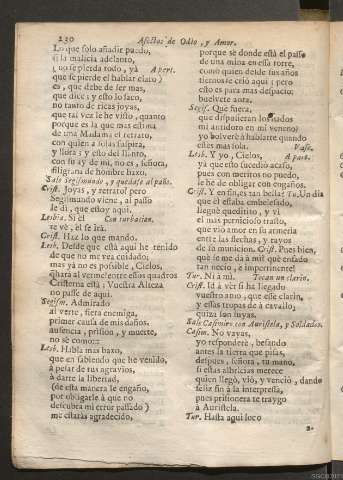 230 Afectos de Odio, y Amor.
Lo que solo añadir puedo,
q̃ la malicia adelanto,
(no se pierda todo, yà Apart.
que se pierde el hablar claro)
es, que debe de ser mas,
que dice; y esto lo saco,
no tanto de ricas joyas,
que tal vez le he visto, quanto
porque es la que mas estima
de una Madama el retrato,
con quien a solas suspira,
y llora; y esto del llanto,
con su ay de mi, no es, señora,
filigrana de hombre baxo.
Sale Segismundo, y quedase al paño.
Crist. Joyas, y retrato? pero
Segismundo viene, al passo
le di, que estoy aqui.
Lesbia. Si èl Con turbacion.
te vè, èl se irà.
Crist. Haz lo que mando.
Lesb. Desde que està aqui he tenido
de que no me vea cuidado;
mas yà no es posible, Cielos,
q̃harà al verme? entre essos quadros
Cristerna està: Vuestra Alteza
no passe de aqui.
Segism. Admirado
al verte, fiera enemiga,
primer causa de mis daños,
ausencia, prision, y muerte,
no sè como::
Lesb. Habla mas baxo,
que en sabiendo que he venido,
à pesar de tus agravios,
à darte la libertad,
(de esta manera le engaño,
por obligarle à que no
descubra mi error passado)
me estaràs agradecido,
porque sè donde està el passo
de una mina en essa torre,
como quien desde sus años
tiernos se criò aqui; pero
esto es para mas despacio;
buelvete aora.
Segis. Què fuera,
que dispusieran los hados
mi antidoto en mi veneno?
yo bolverè à hablarte quando
estès mas sola. Vase.
Lesb. Y yo, Cielos, A part.
yà que esto sucedio acaso,
pues con meritos no puedo,
le he de obligar con engaños.
Crist. Y en fin, es tan bella? Tu. Un dia
que èl estaba embelesado,
lleguè queditito, y vi
el mas pernicioso trasto,
que viò amor en su armeria
entre las flechas, y rayos
de su municion. Crist. Pues bien,
què se me dà à mi? què ensado
tan necio, è impertinente!
Tur. Ni à mi. Tocan un clarin.
Crist. Id à vèr si ha llegado
vuestro amo, que esse clarin,
y essas tropas de à cavallo,
quiza son suyas.
Sale Casimiro con Auristela, y Soldados.
Casim. No vayas,
yo responderè, besando
antes la tierra que pisas,
despues, señora, tu mano,
si estas albricias merece
quien llegò, viò, y venciò, dando
feliz fin à la interpressa,
pues prisionera te traygo
à Auristela.
Tur. Hasta aqui loco